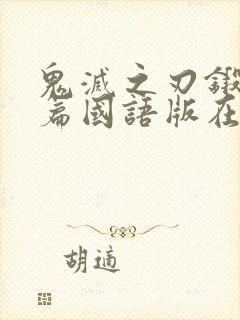 鬼滅之刃鍛
篇國語版在
胡適